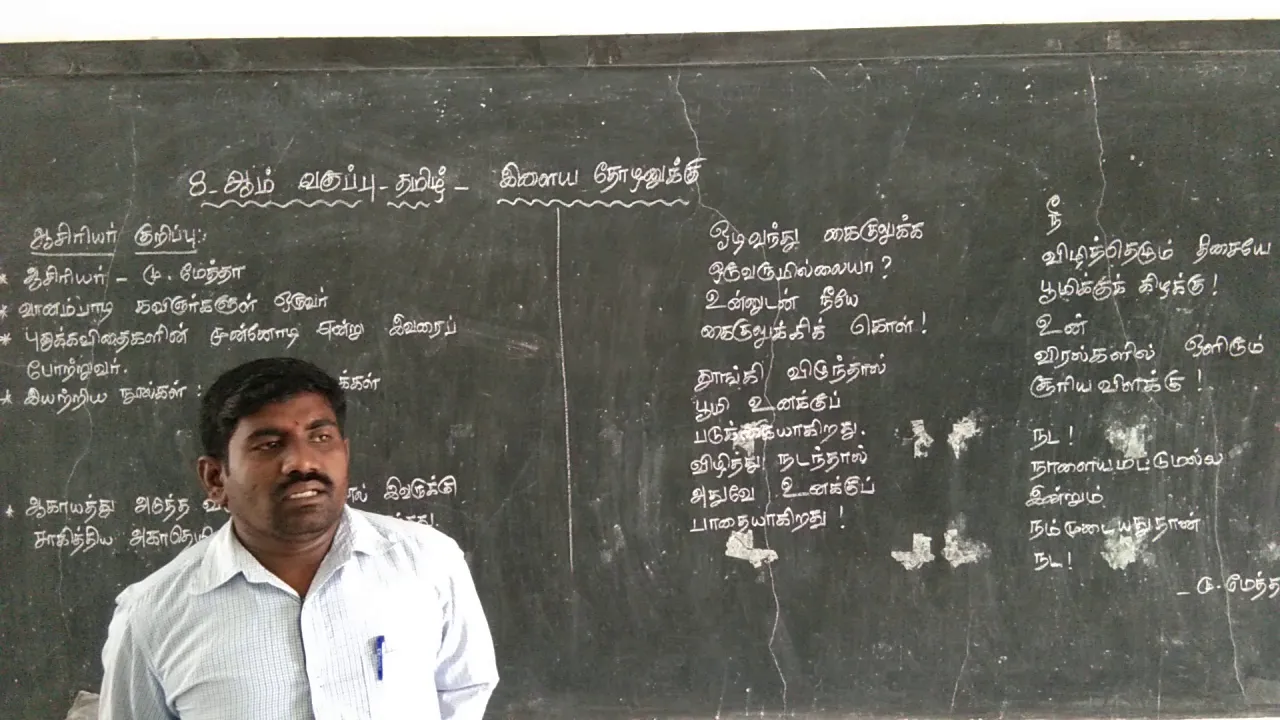 8-ஆம் வகுப்பு - தமிழ் - இளைய தோழனுக்கு
ஆசிரியர் குறிப்பு:
* ஆசிரியர் - மு. மேத்தா
* வானம்பாடி கவிஞர்களுள் ஒருவர்
* புதுக்கவிதைகளின் முன்னோடி என்று இவரைப்
போற்றுவர்.
* இயற்றிய நூல்கள் : க்கள்
* ஆகாயத்து அடுத்த இவருக்கு
சாகித்திய
ஓடிவந்து கைகுலுக்க
ஒருவருமில்லையா?
உன்னுடன் நீயே
கைகுலுக்கிக் கொள்!
தூங்கி விடுந்தால்
பூமி உனக்குப்
படுக்கையாகிறது.
விழித்து நடந்தால்
அதுவே உனக்குப்
பாதையாகிறது!
நீ
விழித்தெழும் திசையே
பூமிக்குக் கிழக்கு!
உன்
விரல்களில் ஒளிரும்
சூரிய விளக்கு!
நட!
நாளையமட்டுமல்ல
இன்றும்
நம்முடையதுதான்
நட!
- மு. மேத்தா